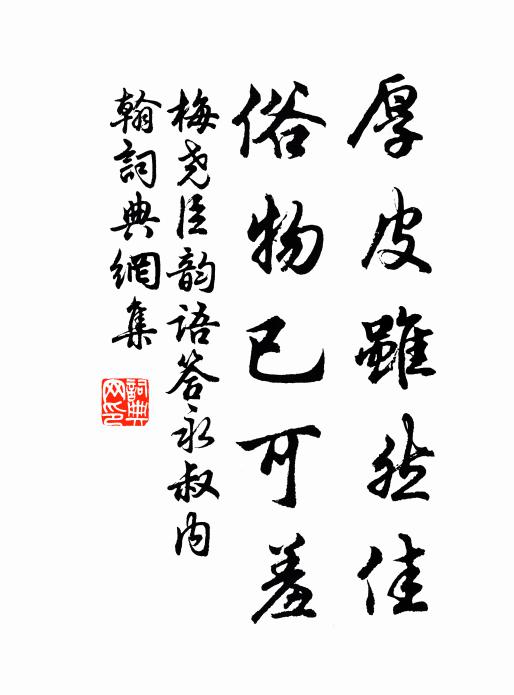 厚皮雖然佳
俗物已可羞
梅尧臣韵語答永叔内
翰詞典網集
詞典
网印